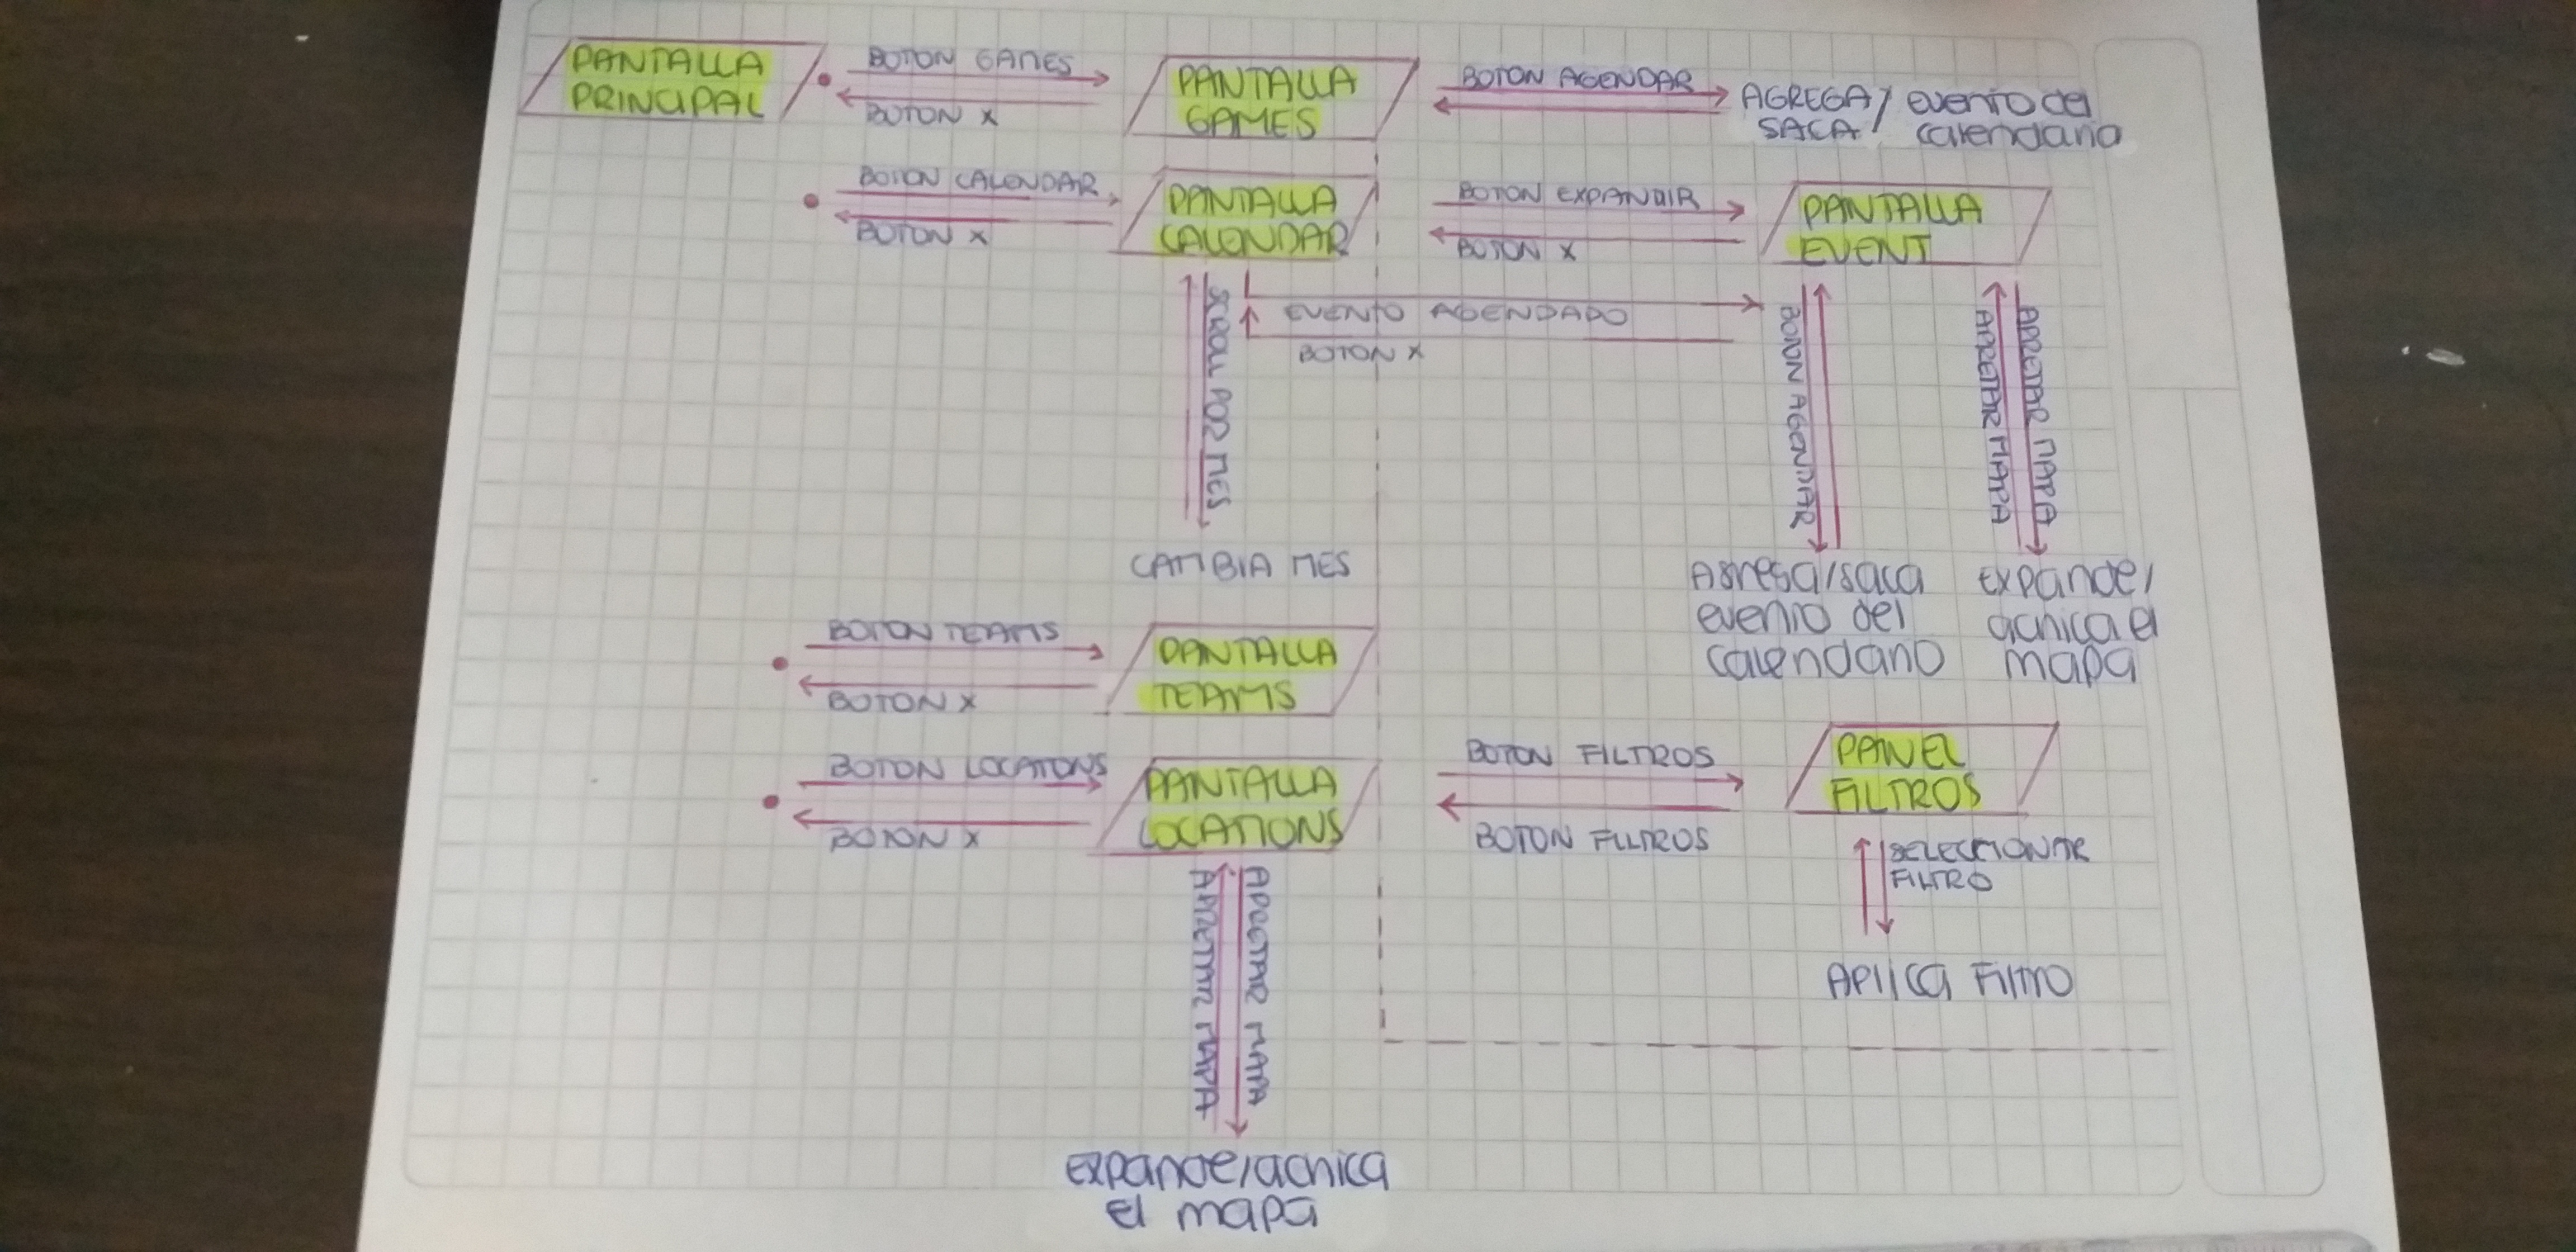 PANTALLA
PRINCIPAL
BOTON GAMES
BOTON X
PANTALLA
GAMES
BOTON AGENDAR
AGREGA/
SACA
evento del
calendario
BOTON CALENDAR
BOTON X
PANTALLA
CALENDAR
BOTON EXPANDIR
BOTON X
PANTALLA
EVENT
SCROLL POR MES
EVENTO AGENDADO
BOTON X
BOTON AGENDAR
APRETAR MAPA
APRETAR MAPA
CAMBIA MES
Agrega/saca
evento del
calendario
expande/
achica el
mapa
BOTON TEAMS
BOTON X
PANTALLA
TEAMS
BOTON LOCATIONS
BOTON X
PANTALLA
LOCATIONS
BOTON FILTROS
BOTON FILTROS
PANEL
FILTROS
SELECCIONAR
FILTRO
APlica Filtro
APRETAR MAPA
APRETAR MAPA
expande/achica
el mapa